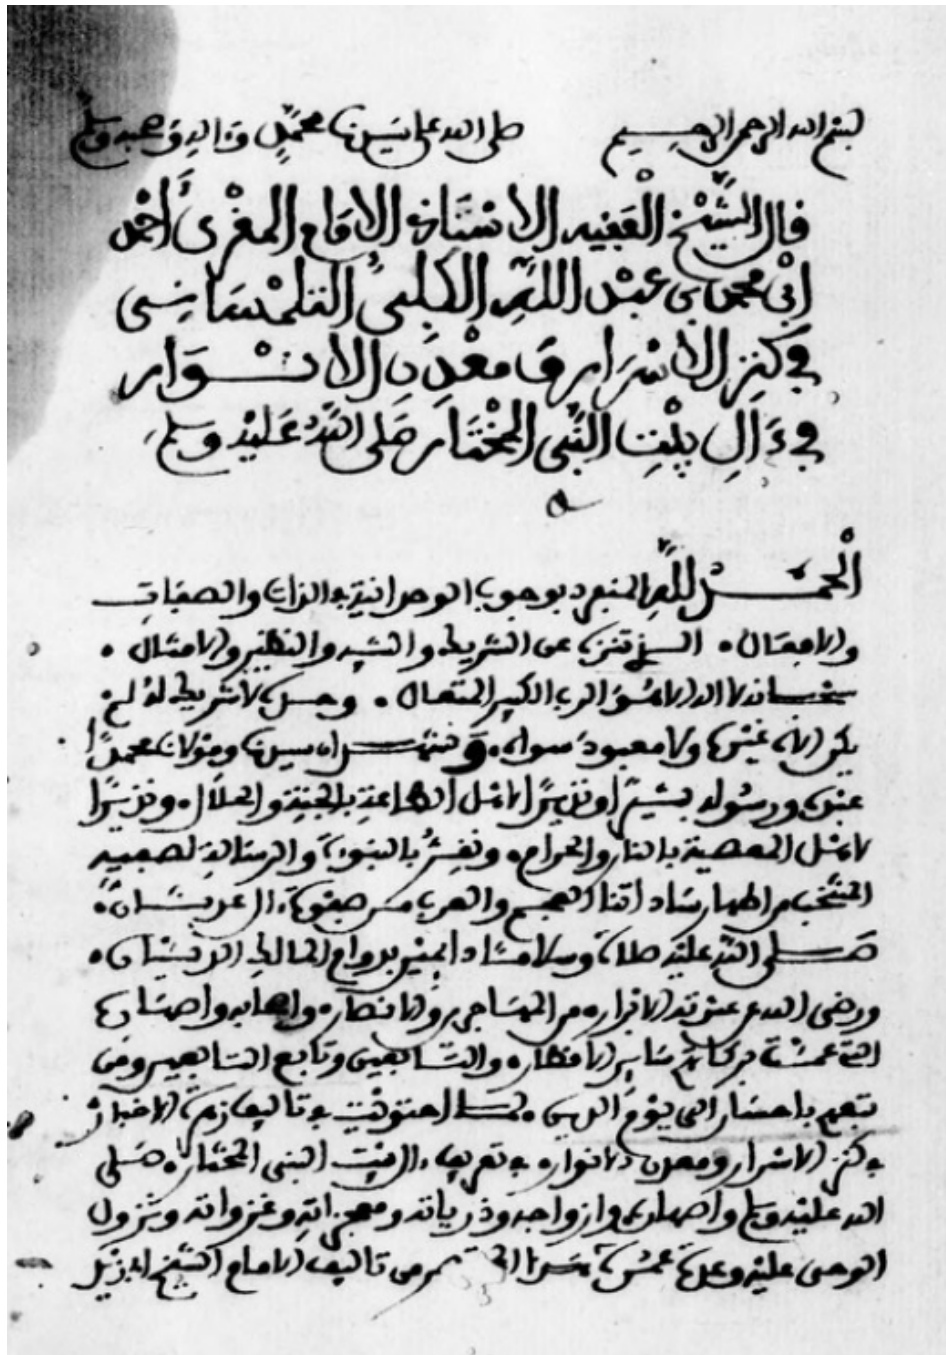 بسم الله الرحمن الرحيم صلى الله على سيدنا محمد وءاله وصحبه وسلم
قال الشيخ الفقيه الاستاذ الإمام المغرى أحمد
ابن محمد بن عبد الله الكلبي التلمساني
في كنز الاسرار ومعدن الانوار
في ءال بيت النبي المختار صلى الله عليه وسلم
الحمد لله المنفرد بوجوب الوحدانية في الذات والصفات
والافعال. الذي تنزه عن الشريك والشبه والنظير والامثال.
سبحانه لا اله الا هو الرب الكبير المتعال. وحده لا شريك له لم
يكن إلاه غيره ولا معبود سواه. ونشهد ان سيدنا ومولانا محمدا
عبده ورسوله بشيرا ونذيرا لاهل الطاعة بالجنة والحلال. ونذيرا
لاهل المعصية بالنار والحرام. بالنبوءة والرسالة لصفيه
المنتخب من اطهار سادتنا العجم والعرب من صفوة ءال عدنان.
صلى الله عليه صلاة وسلاما دايمين بدوام المالك الديان.
ورضي الله عن عترته الابرار. من المهاجرين والانصار. واصحابه واصهاره
التي عمت بركاتهم ساير الاقطار. والتابعين وتابع التابعين ومن
تبعهم باحسان الى يوم الدين. لما احتويت في تاليف الاخبار
في كنز الاسرار ومعدن الانوار. في تعريف ءال بيت النبي المختار. صلى
الله عليه وسلم واصهاره وازواجه وذرياته ومعجزاته وغزواته ونزول
الوحي عليه وعلى عمره من تاليف الامام الشيخ